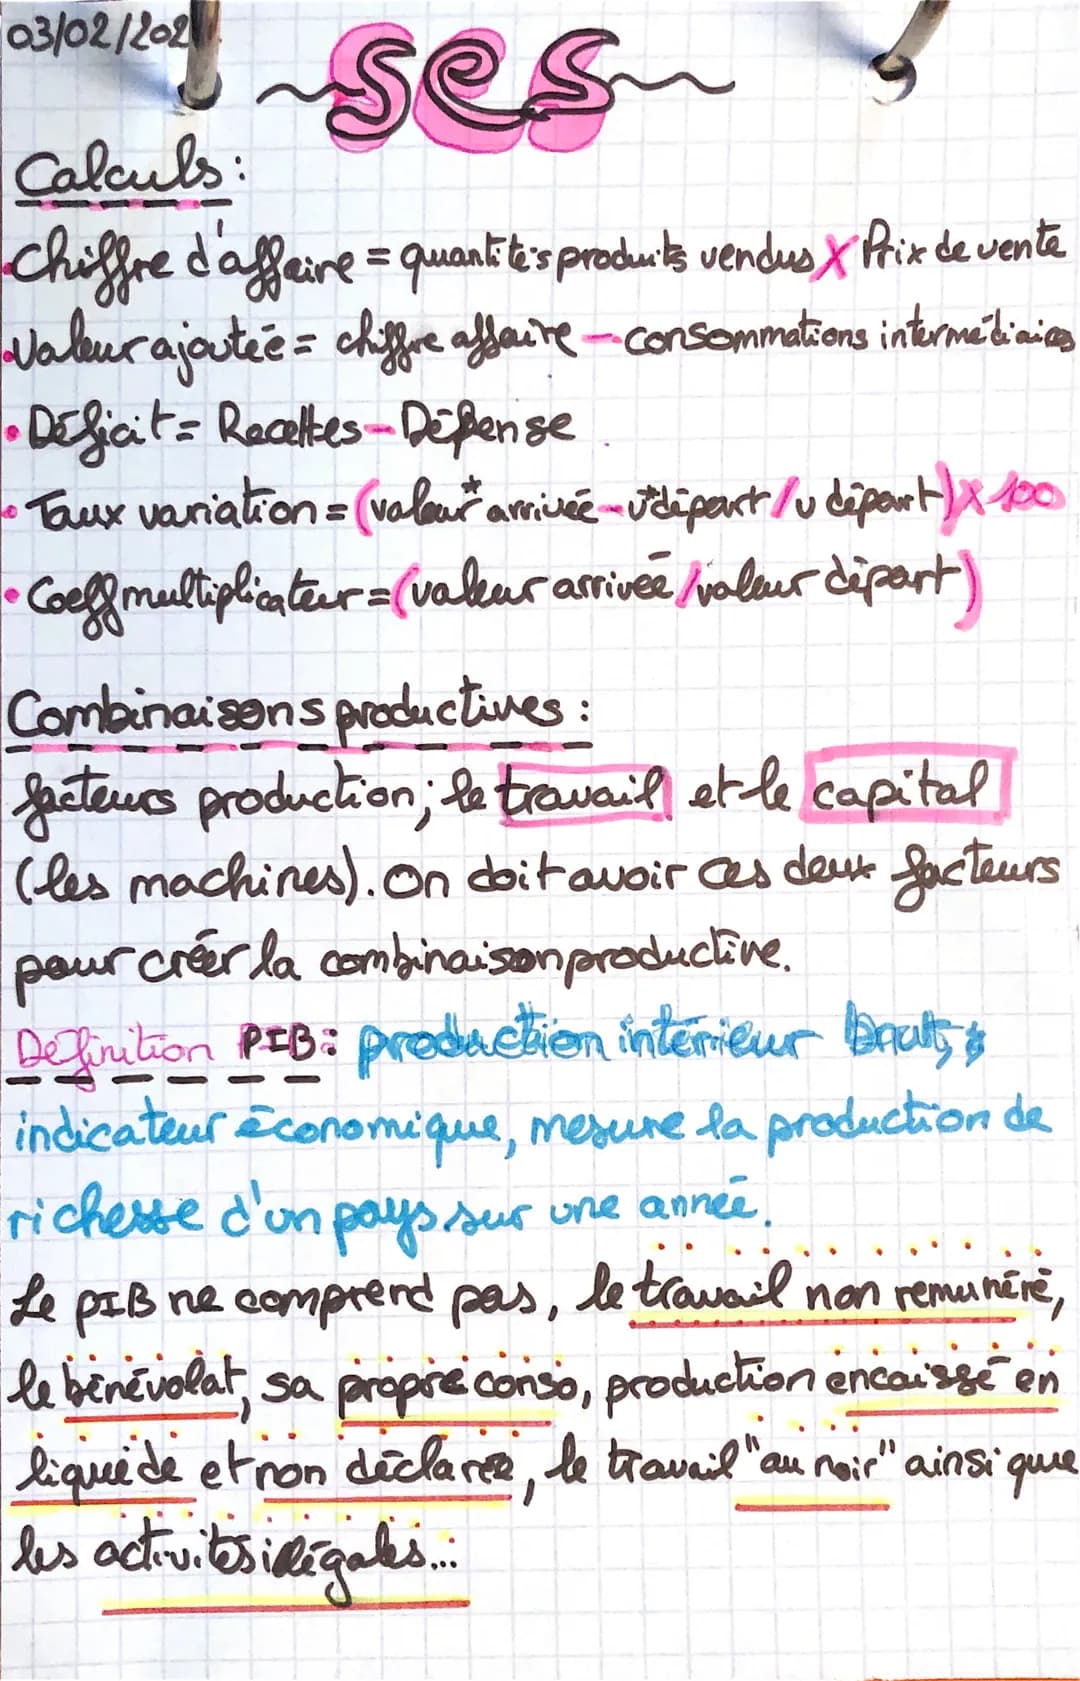 03/02/202
SES
Calculs :
• Chiffre d'affaire = quantités produits vendus X Prix de vente
• Valeur ajoutée = chiffre affaire - consommations intermédiaires
• Déficit = Recettes - Dépense
• Taux variation = (valeur* arrivée - v* départ / v départ) X 100
• Coeff multiplicateur = (valeur arrivée / valeur départ)
Combinaisons productives :
facteurs production; le travail et le capital
(les machines). On doit avoir ces deux facteurs
pour créer la combinaison productive.
Définition PIB : production intérieur brut,
indicateur économique, mesure la production de
richesse d'un pays sur une année.
Le PIB ne comprend pas, le travail non remunéré,
le bénévolat, sa propre conso, production encaissé en
liquide et non déclarée, le travail "au noir" ainsi que
les activités illégales...